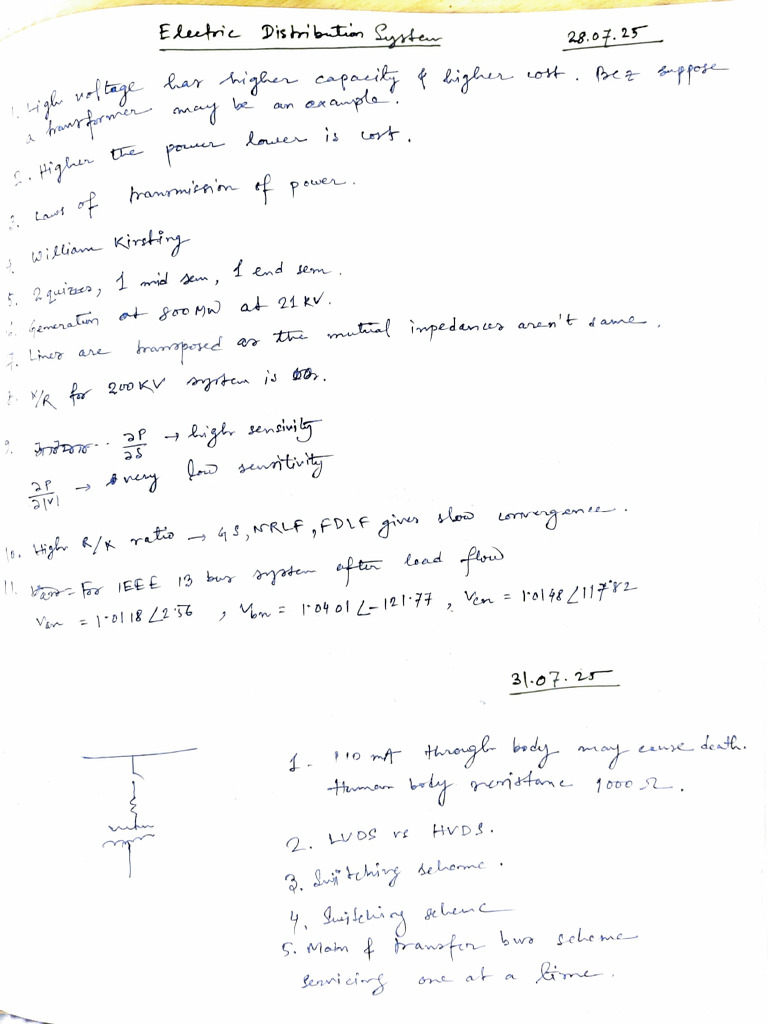 Electric Distribution System
28.07.25
1. High voltage has higher capacity & higher cost. Bcz suppose
a transformer may be an example.
2. Higher the power lower is cost.
3. Laws of transmission of power.
4. William Kirsting
5. 2 quizzes, 1 mid sem, 1 end sem.
6. Generation at 800 MW at 21 KV.
7. Lines are transposed as the mutual impedances aren't same.
8. X/R for 200KV system is
9. ∂P/∂δ → high sensivity
∂P/∂|V| → very low sensitivity
10. High R/X ratio → GS, NRLF, FDLF gives slow convergence.
11. For IEEE 13 bus system after load flow
Van = 1.0118∠2.56, Vbn = 1.0401∠-121.77, Vcn = 1.0148∠117.82
31.07.25
1. 110 mA through body may cause death.
Human body resistance 1000 Ω.
2. LVDS vs HVDS.
3. Switching scheme.
4. Switching scheme
5. Main & transfer bus scheme
servicing one at a time.